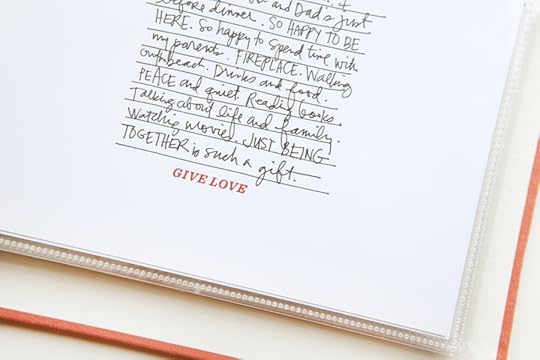 before dinner. SO HAPPY TO BE
HERE. So happy to spend time with
my parents. FIREPLACE. Walking
on the beach. Drinks and food.
PEACE and quiet. Reading books.
Talking about life and family.
Watching movies. JUST BEING
TOGETHER is such a gift.
GIVE LOVE